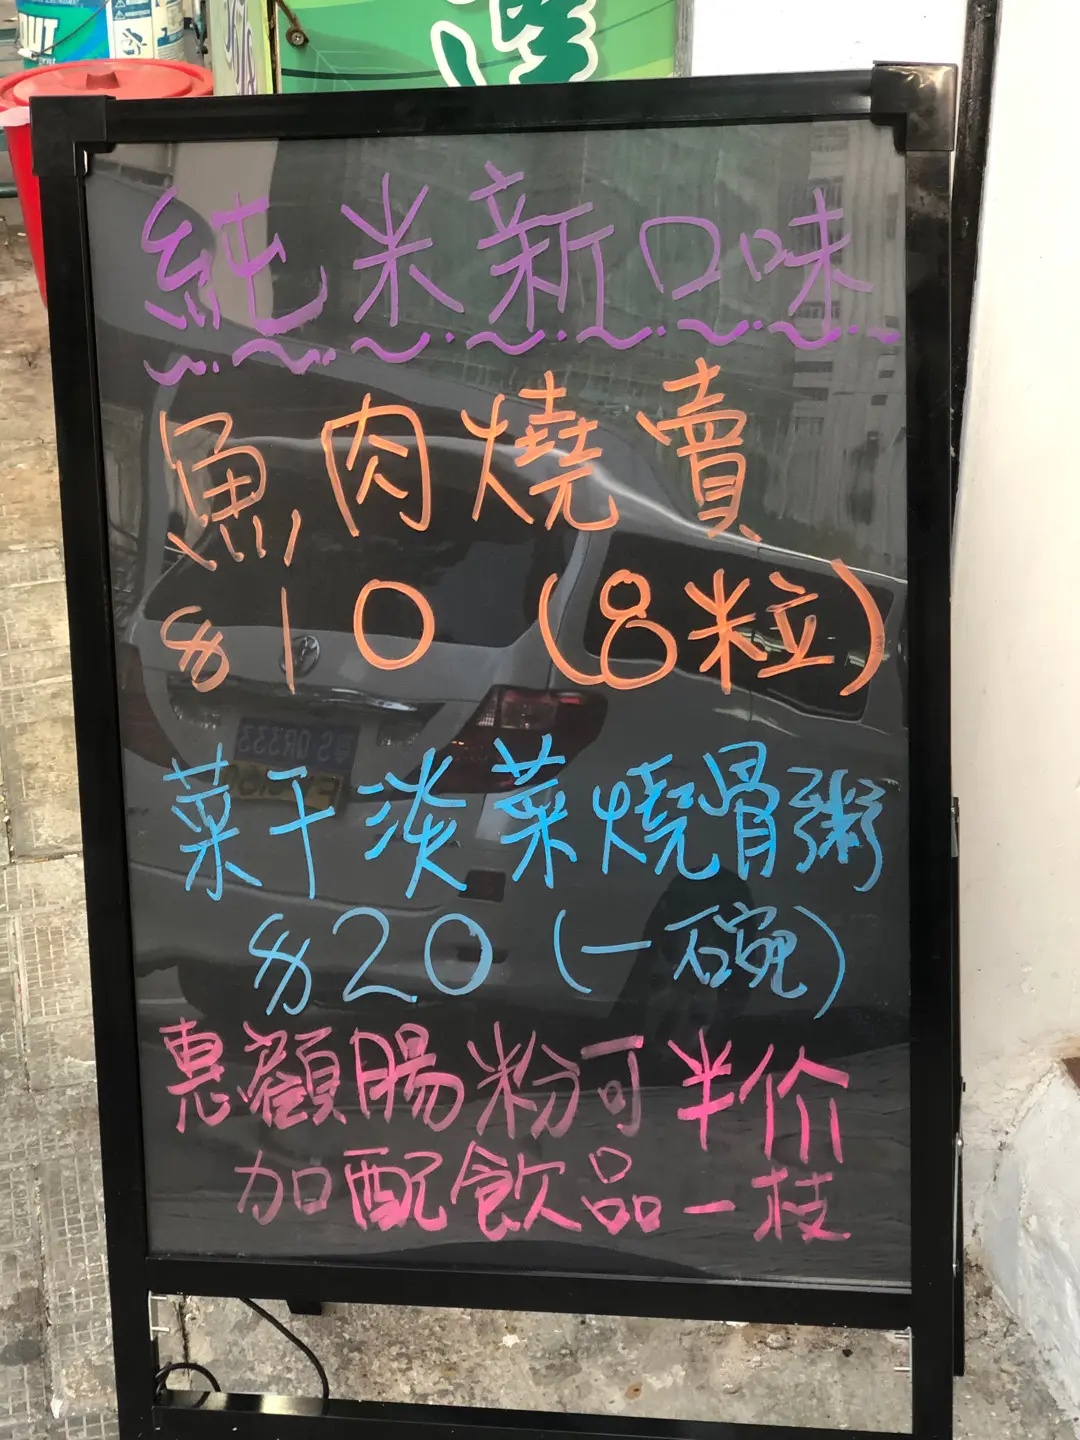 純米新口味
魚肉燒賣
$10 (8粒)
菜干淡菜燒骨粥
$20 (一碗)
惠顧腸粉可半价
加配飲品一枝